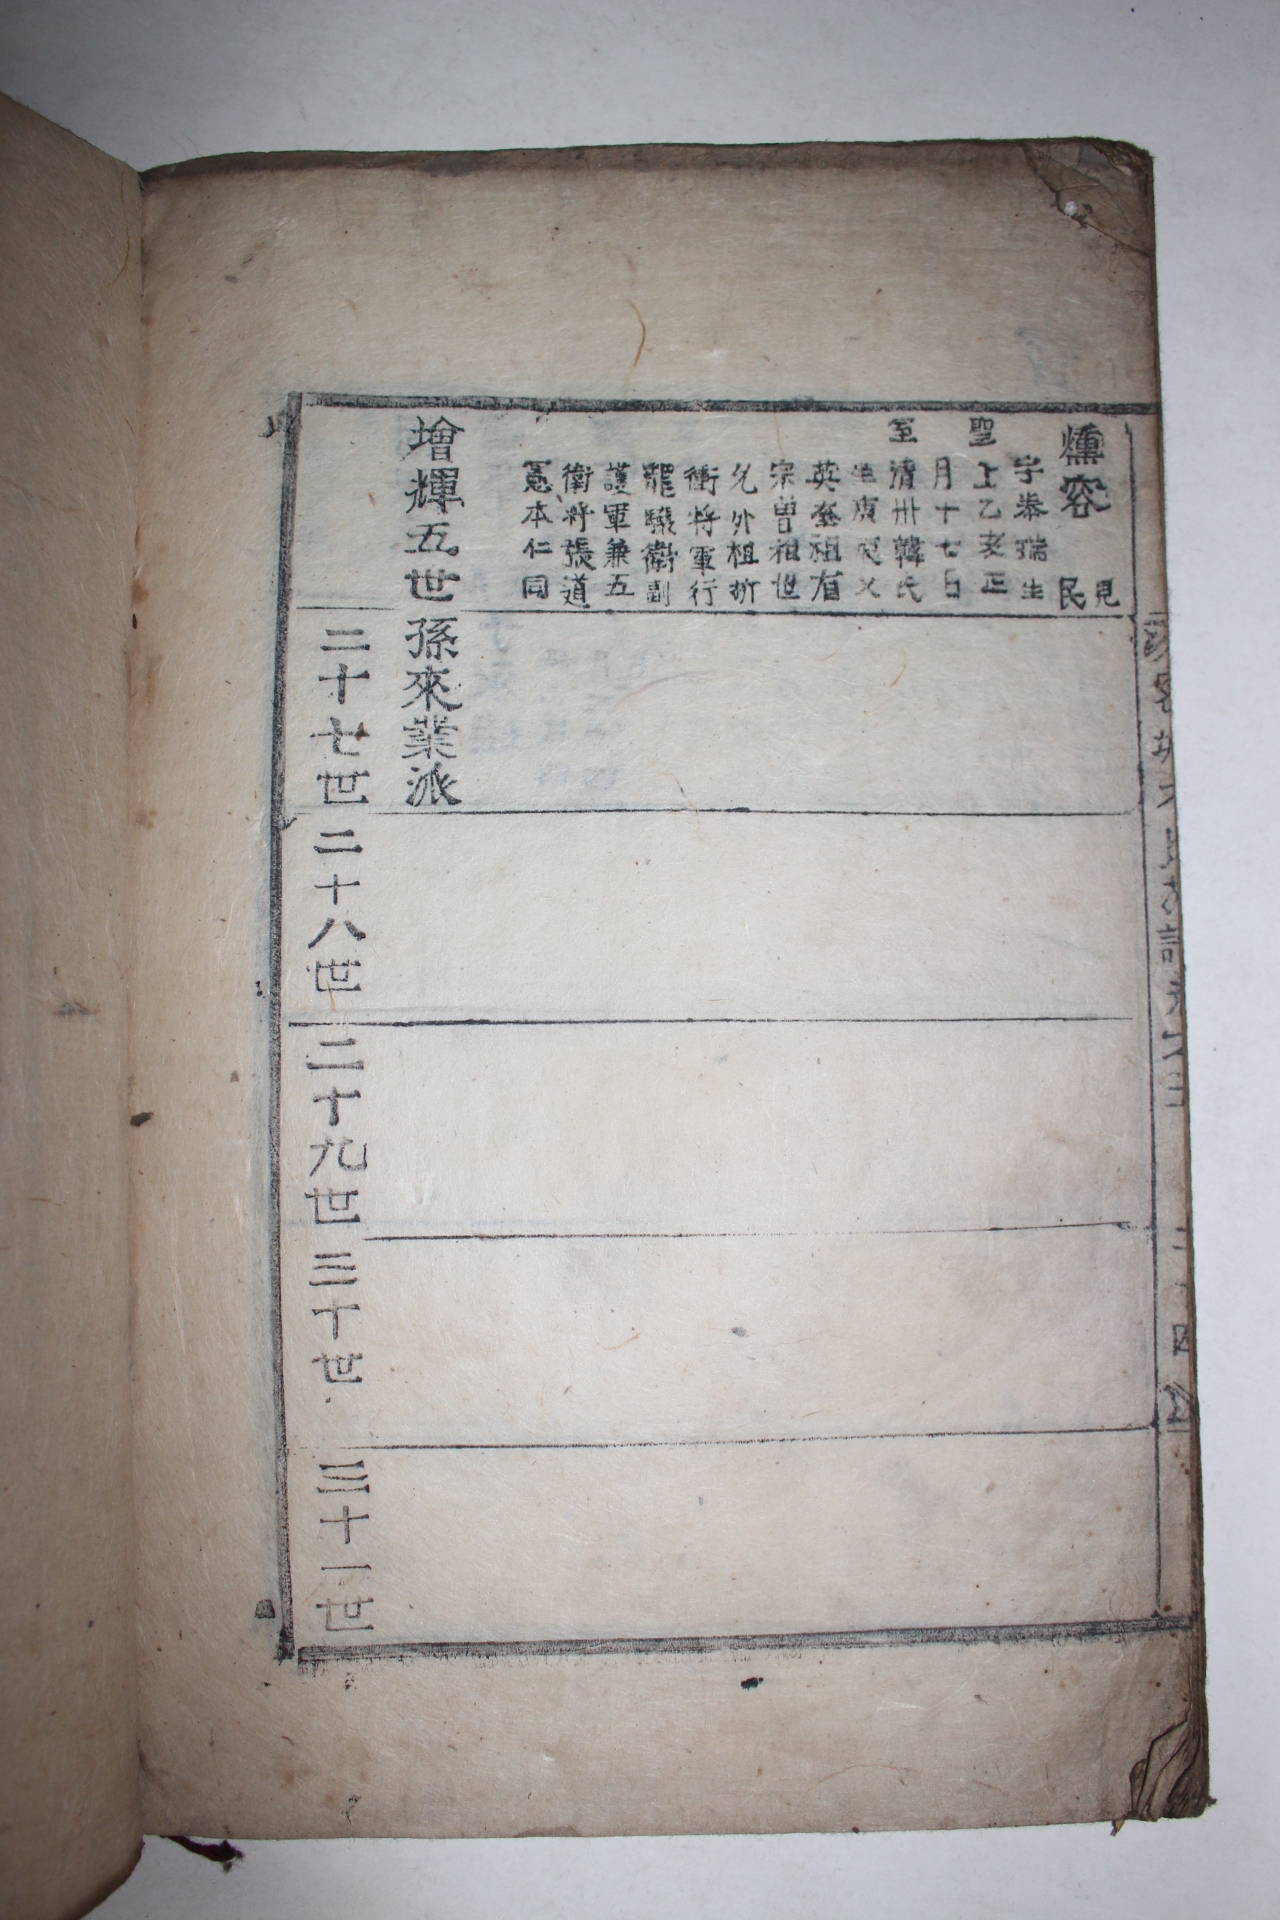 燻容
見
民
字泰瑞生
聖
上乙亥正
月十七日
室
清州韓氏
生庚寅父
英奎祖有
宗曽祖世
允外祖折
衝將軍行
龍驤衛副
護軍兼五
衛將張道
憲本仁同
增輝五世孫來業派
二十七世
二十八世
二十九世
三十世
三十一世